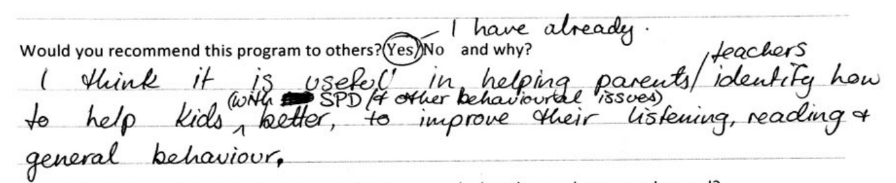 I have already.
Would you recommend this program to others? Yes/No and why?
teachers
I think it is useful in helping parents/ identify how
(with SPD (& other behavioural issues)
to help kids ^ better, to improve their listening, reading &
general behaviour.